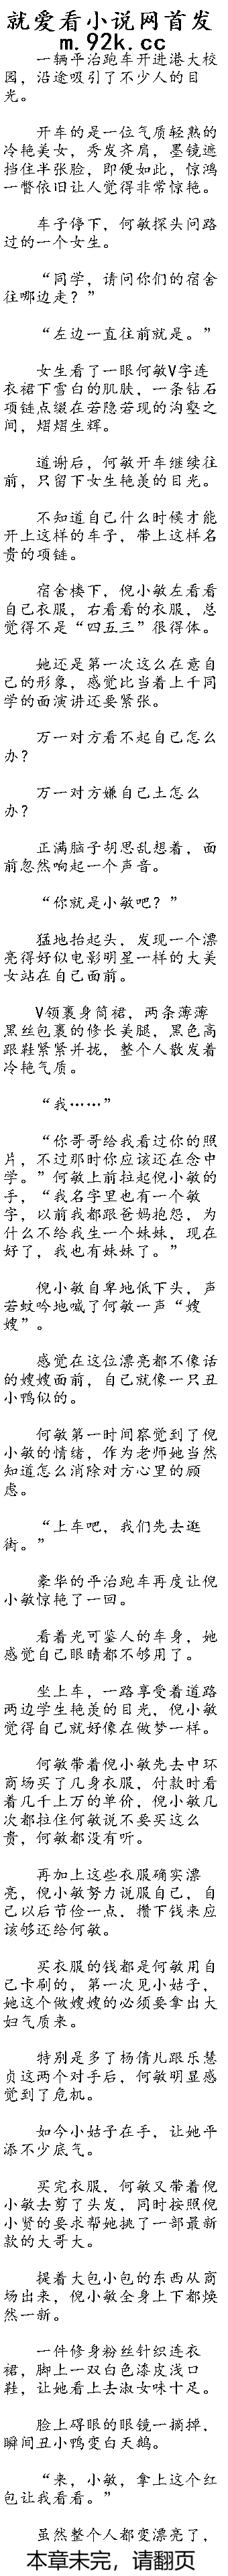 就爱看小说网首发
m.92k.cc
一辆平治跑车开进港大校
园，沿途吸引了不少人的目
光。
开车的是一位气质轻熟的
冷艳美女，秀发齐肩，墨镜遮
挡住半张脸，即便如此，惊鸿
一瞥依旧让人觉得非常惊艳。
车子停下，何敏探头问路
过的一个女生。
“同学，请问你们的宿舍
往哪边走？”
“左边一直往前就是。”
女生看了一眼何敏V字连
衣裙下雪白的肌肤，一条钻石
项链点缀在若隐若现的沟壑之
间，熠熠生辉。
道谢后，何敏开车继续往
前，只留下女生艳羡的目光。
不知道自己什么时候才能
开上这样的车子，带上这样名
贵的项链。
宿舍楼下，倪小敏左看看
自己衣服，右看看的衣服，总
觉得不是“四五三”很得体。
她还是第一次这么在意自
己的形象，感觉比当着上千同
学的面演讲还要紧张。
万一对方看不起自己怎么
办？
万一对方嫌自己土怎么
办？
正满脑子胡思乱想着，面
前忽然响起一个声音。
“你就是小敏吧？”
猛地抬起头，发现一个漂
亮得好似电影明星一样的大美
女站在自己面前。
V领裹身筒裙，两条薄薄
黑丝包裹的修长美腿，黑色高
跟鞋紧紧并拢，整个人散发着
冷艳气质。
“我……”
“你哥哥给我看过你的照
片，不过那时你应该还在念中
学。”何敏上前拉起倪小敏的
手，“我名字里也有一个敏
字，以前我都跟爸妈抱怨，为
什么不给我生一个妹妹，现在
好了，我也有妹妹了。”
倪小敏自卑地低下头，声
若蚊吟地喊了何敏一声“嫂
嫂”。
感觉在这位漂亮都不像话
的嫂嫂面前，自己就像一只丑
小鸭似的。
何敏第一时间察觉到了倪
小敏的情绪，作为老师她当然
知道怎么消除对方心里的顾
虑。
“上车吧，我们先去逛
街。”
豪华的平治跑车再度让倪
小敏惊艳了一回。
看着光可鉴人的车身，她
感觉自己眼睛都不够用了。
坐上车，一路享受着道路
两边学生艳羡的目光，倪小敏
觉得自己就好像在做梦一样。
何敏带着倪小敏先去中环
商场买了几身衣服，付款时看
着几千上万的单价，倪小敏几
次都拉住何敏说不要买这么
贵，何敏都没有听。
再加上这些衣服确实漂
亮，倪小敏努力说服自己，自
己以后节俭一点，攒下钱来应
该够还给何敏。
买衣服的钱都是何敏用自
己卡刷的，第一次见小姑子，
她这个做嫂嫂的必须要拿出大
妇气质来。
特别是多了杨倩儿跟乐慧
贞这两个对手后，何敏明显感
觉到了危机。
如今小姑子在手，让她平
添不少底气。
买完衣服，何敏又带着倪
小敏去剪了头发，同时按照倪
小贤的要求帮她挑了一部最新
款的大哥大。
提着大包小包的东西从商
场出来，倪小敏全身上下都焕
然一新。
一件修身粉丝针织连衣
裙，脚上一双白色漆皮浅口
鞋，让她看上去淑女味十足。
脸上碍眼的眼镜一摘掉，
瞬间丑小鸭变白天鹅。
“来，小敏，拿上这个红
包让我看看。”
虽然整个人都变漂亮了，
本章未完，请翻页